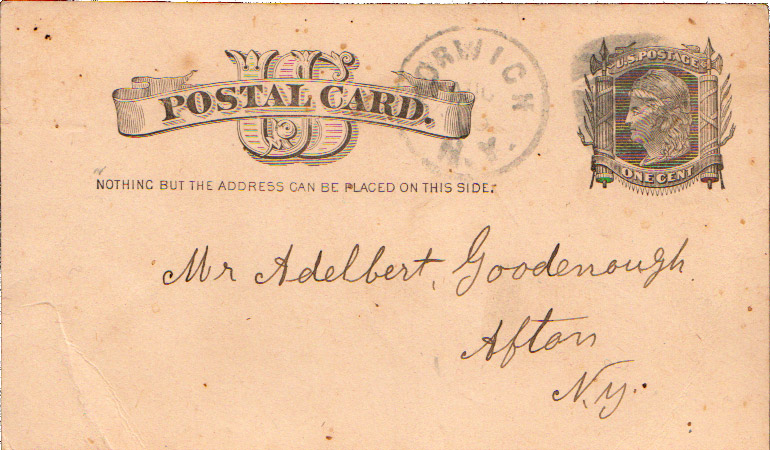 US
POSTAL CARD.
NORWICH
N.Y.
U.S. POSTAGE
ONE CENT
NOTHING BUT THE ADDRESS CAN BE PLACED ON THIS SIDE.
Mr Adelbert Goodenough
Afton
N.y.